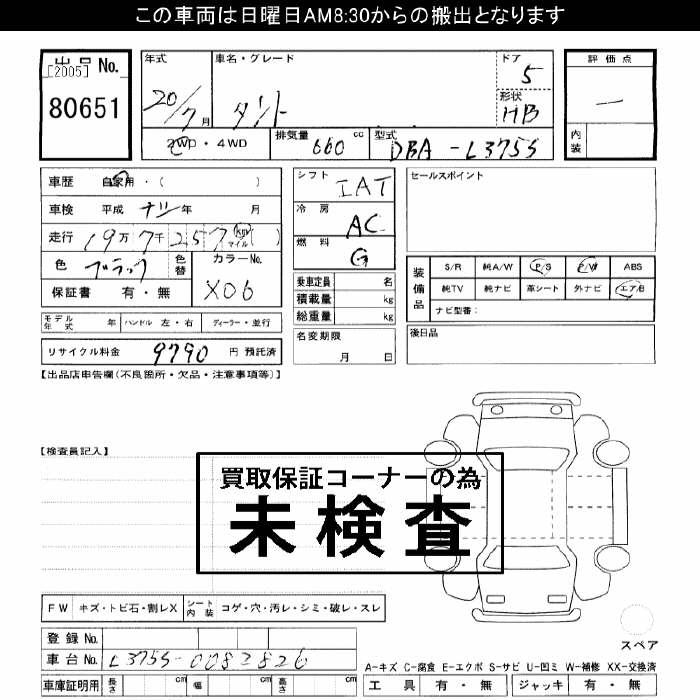 この車両は日曜日AM8:30からの搬出となります
出品 No.
[2005]
80651
年式
20/7月
車名・グレード
タント
ドア
5
形状
HB
評価点
―
内装
2WD・4WD
排気量 660 cc
型式 DBA-L375S
車歴 自家用・( )
車検 平成 ナシ 年 月
走行 19万7千257 km マイル ( )
色 ブラック
色替
カラーNo.
X06
保証書 有・無
シフト
IAT
冷房
AC
燃料
G
乗車定員 名
積載量 kg
総重量 kg
名変期限
月 日
セールスポイント
装備品
S/R 純A/W P/S P/W ABS
純TV 純ナビ 革シート 外ナビ エアB
ナビ型番:
後日品
モデル年式 年 ハンドル 左・右 ディーラー・並行
リサイクル料金 9790 円 預託済
【出品店申告欄(不良箇所・欠品・注意事項等)】
【検査員記入】
買取保証コーナーの為
未検査
FW キズ・トビ石・割レX シート内装 コゲ・穴・汚レ・シミ・破レ・スレ
登録 No.
車台 No. L375S-0082826
車庫証明用 長さ cm 幅 cm 高さ cm
スペア
A-キズ C-腐食 E-エクボ S-サビ U-凹ミ W-補修 XX-交換済
工具 有・無 ジャッキ 有・無